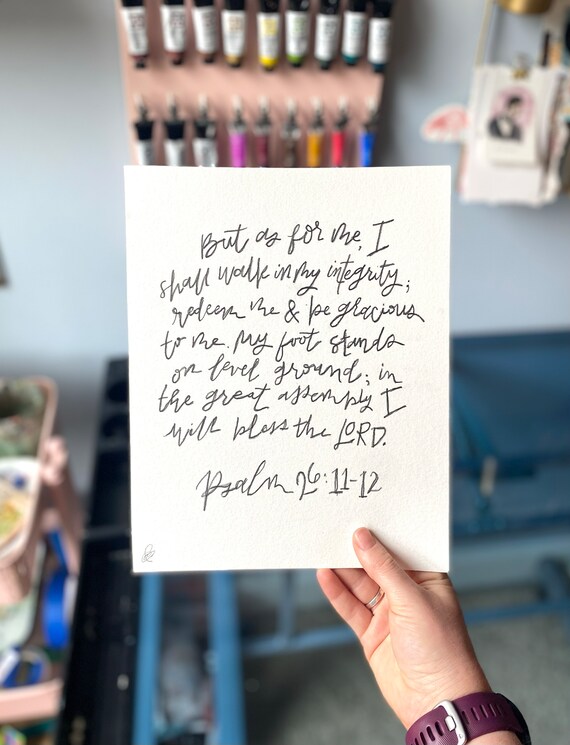 But as for me, I
shall walk in my integrity;
redeem me & be gracious
to me. My foot stands
on level ground; in
the great assembly I
will bless the LORD.
Psalm 26:11-12